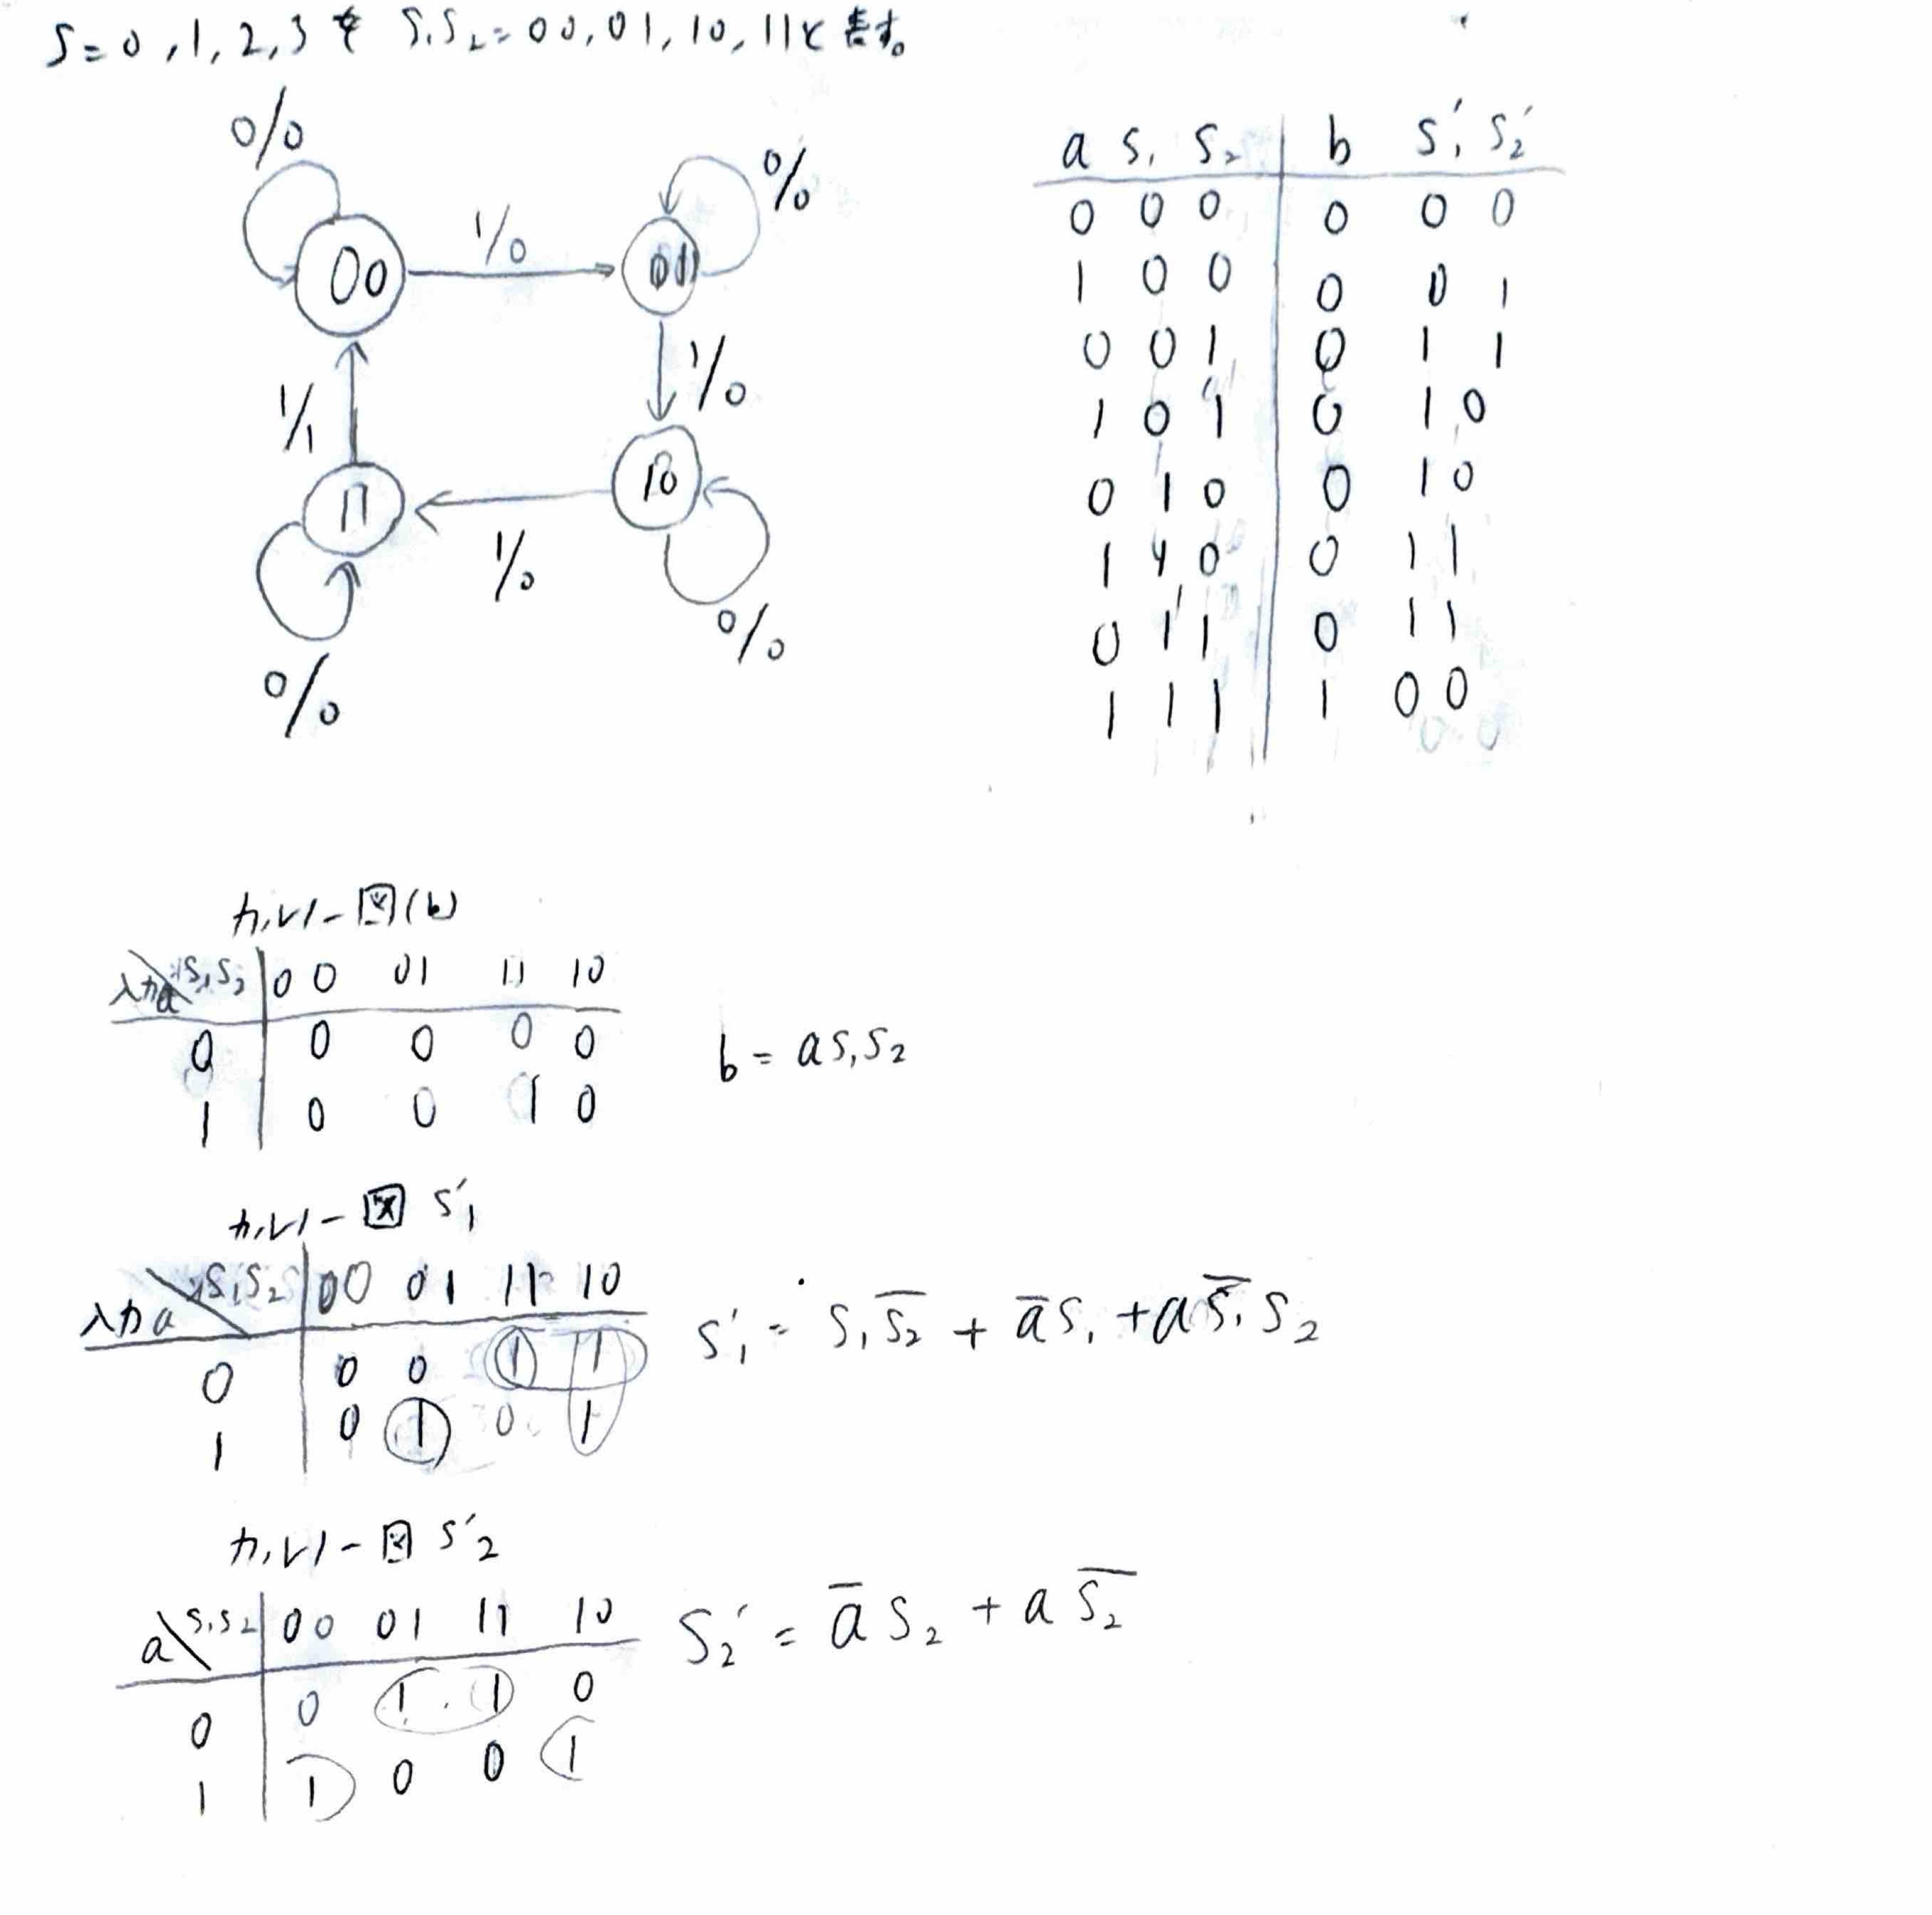 S=0,1,2,3を S₁S₂=00,01,10,11と表す。
0/0
1/0
0/0
00
01
1/1
1/0
11
10
1/0
0/0
0/0
a S₁ S₂ b S₁' S₂'
0 0 0 0 0 0
1 0 0 0 0 1
0 0 1 0 1 1
1 0 1 0 1 0
0 1 0 0 1 0
1 1 0 0 1 1
0 1 1 0 1 1
1 1 1 1 0 0
カルノー図(b)
入力a S₁S₂ 00 01 11 10
0 0 0 0 0
1 0 0 1 0
b = aS₁S₂
カルノー図 S'₁
入力a S₁S₂ 00 01 11 10
0 0 0 1 1
1 0 1 0 1
S'₁ = S₁S̅₂ + a̅S₁ + aS̅₁S₂
カルノー図 S'₂
a S₁S₂ 00 01 11 10
0 0 1 1 0
1 1 0 0 1
S₂' = a̅S₂ + aS̅₂